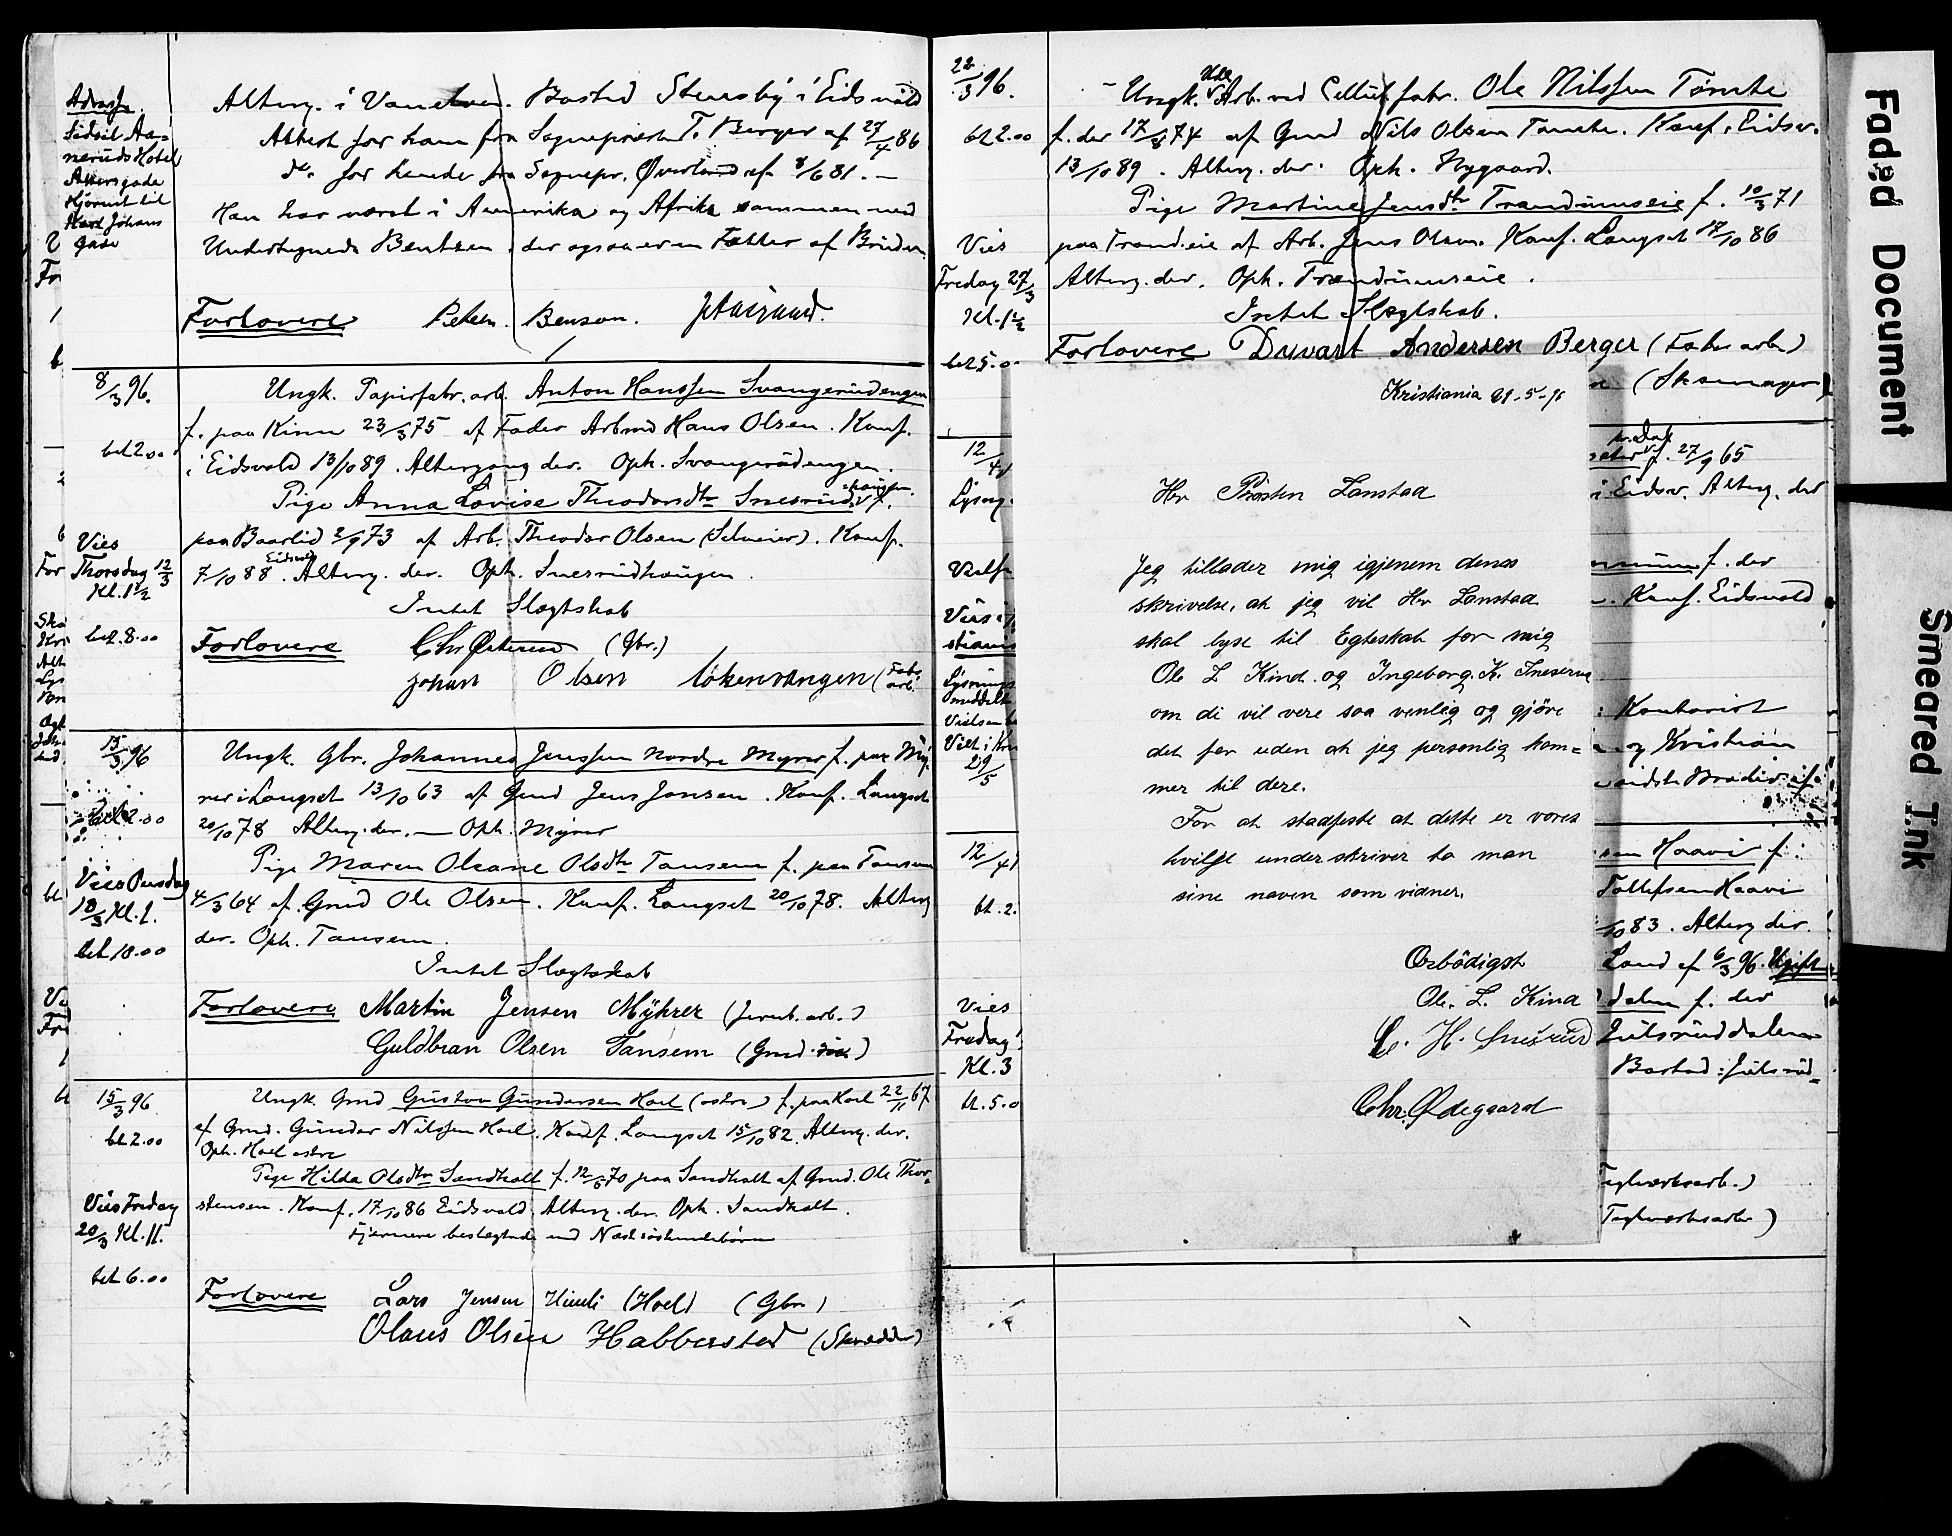 Adresse.
Sidsil Aa=
neruds Hotel
Akersgade
Hjørnet til
Karl Johans
gade
Alterg. i Vanelven. Bosted Stensby i Eidsvold
Attest for ham fra Sognepræst T. Berger af 27/4 86
do. for hende fra Sognepr. Øverland af 8/6 81. —
Han har været i Amerika og Afrika sammen med
Undertegnede Bentzen, der ogsaa er en Fætter af Bruden.
Forlovere Petersen. Benson.
8/3 96.
bet 2.00
Ungk. Papirfabr. arb. Anton Hanssen Svangerudengen
f. paa Kinn 23/3 75 af Fader Arbmd Hans Olsen. Konf.
i Eidsvold 13/10 89. Altergang der. Oph. Svangerudengen.
Pige Anna Lovise Theodorsdtr Snesrudhaugen f.
paa Baarlid 2/9 73 af Arb. Theodor Olsen (Selveier). Konf.
7/10 88 Eidsvold. Alterg. der. Oph. Snesrudhaugen.
Intet Slægtskab
Vies
Thorsdag 12/3
Kl. 1 1/2
bet. 8.00
Forlovere Chr Petersen (Gbr.)
Johan Olsen Løkenvangen (Fabr. arb.
15/3 96
bet 2.00
Ungk. Gbr. Johannes Jenssen nordre Myrer f. paa My-
rer i Langset 13/10 63 af Gmd Jens Jonsen. Konf. Langset
20/10 78 Alterg. der. — Oph. Myrer
Pige Maren Oleane Olsdtr Tansem f. paa Tansem
4/3 64 af Gmd Ole Olsen. Konf. Langset 20/10 78. Alterg
der. Oph. Tansem.
Intet Slægtskab
Vies Onsdag
18/3 Kl. 1.
bet 10.00
Forlovere Martin Jensen Myhrer (Jernb. arb.)
Guldbran Olsen Tansem (Gmd.)
15/3 96
bet 2.00
Ungk. Gmd Gustav Gundersen Hoel (østre) f. paa Hoel 22/11 67
af Gmd. Gunder Nilssen Hoel. Konf. Langset 15/10 82. Alterg. der.
Oph. Hoel østre
Pige Hilda Olsdtr Sandholt f. 12/5 70 paa Sandholt af Gmd. Ole Thor-
stensen. Konf. 17/10 86 Eidsvold. Alterg. der. Oph. Sandholt.
Fjernere beslægtede end Næstsøskendebørn
Vies Fredag
20/3 Kl. 11.
bet 6.00
Forlovere Lars Jensen (Hoel) (Gbr.)
Olaus Olsen Habberstad (Skrædder)
22/3 96.
bet 2.00
Ungk. Arb. ved Cellul. fabr. Ole Nilssen Tømte
f. der 17/8 74 af Gmd Nils Olsen Tømte. Konf. Eidsv.
13/10 89. Alterg. der. Oph. Nygaard.
Pige Martine Jensdtr Trandumseie f. 10/3 71
paa Trand.eie af Arb. Jens Olsen. Konf. Langset 17/10 86
Alterg. der. Oph. Trandumseie.
Intet Slægtskab.
Vies
Fredag 27/3
Kl. 1 1/2
bet 5.0
Forlovere Duvart Andersen Berger (Fabr arb.)
(Skomager)
Kristiania 21-5-96
Hr Prosten Lanstad
Jeg tillader mig igjenem denas
skrivelse, at jeg vil Hr Lanstad
skal lyse til Egteskab for mig
Ole L Kind og Ingeborg. K. Sneserud
om di vil vere saa venlig og gjöre
det for uden at jeg personlig kom=
mer til dere.
For at stadfeste at dette er vores
hvilge underskriver to man
sine naven som vidner.
Ærbödigst
Ole. L. Kind
C. H. Snesrud
Chr. Ødegaard
12/4
Lysng.
Vies i
stiania
Lysnings
meddelt
Viet i Kr
29/5
f. 27/9 65
i Eidsv. Alterg. der
f. der
Konf. Eidsvold
Kontorist
og Kristian
12/4
bt. 2.
Haavi f.
Tollefsen Haavi
/10 83. Alterg der.
Land af 6/3 96. Ugift
dalen f. der
Julsruddalen
Bosted: Julsrud=
Vies
Fredag
Kl. 3
bt. 5.0
Teglverksarb.)
Teglverksarb.)
Faded Document
Smeared Ink